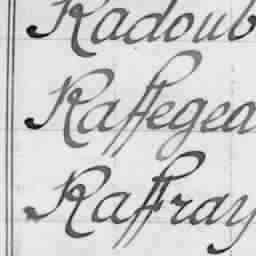 Radoub
Raffegea
Raffray